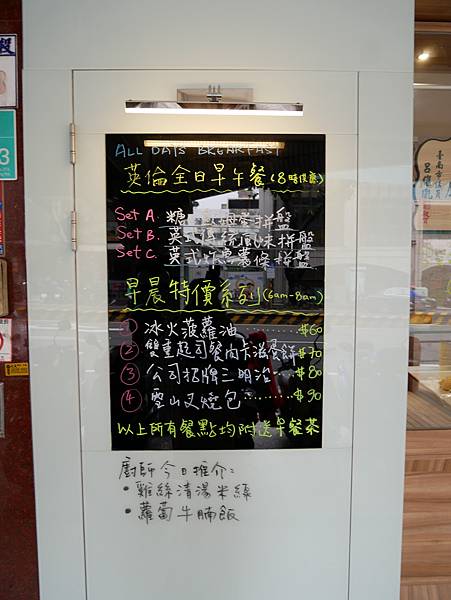 ALL DAYS BREAKFAST
英倫全日早午餐(8時供應)
Set A. 糖 拼盤
Set B. 英式傳統風味拼盤
Set C. 英式炸魚薯條拼盤
早晨特價系列(6am-8am)
① 冰火菠蘿油......$60
② 雙重起司餐肉卡滋蛋餅..$70
③ 公司招牌三明治....$80
④ 雪山叉燒包.........$90
以上所有餐點均附送早餐茶
廚師今日推介:
•雞絲清湯米線
•蘿蔔牛腩飯
臺南市議員
3